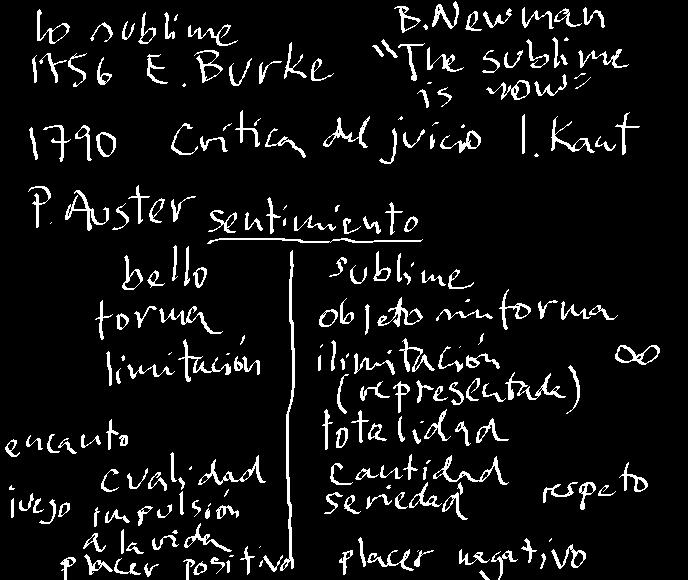 lo sublime
B. Newman
1756 E. Burke
"The sublime
is now"
1790 Crítica del juicio I. Kant
P. Auster sentimiento
bello sublime
forma objeto sin forma
limitación ilimitación ∞
(representada)
totalidad
encanto
cualidad cantidad
juego impulsión seriedad respeto
a la vida
placer positivo placer negativo